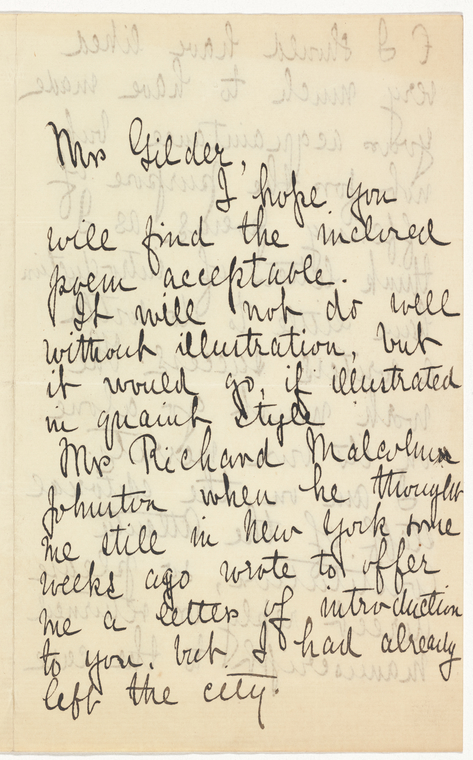 Mrs Gilder,
I hope you
will find the inclosed
poem acceptable.
It will not do well
without illustration, but
it would go, if illustrated
in quaint style
Mrs Richard Malcolm
Johnston when he thought
me still in New York some
weeks ago wrote to offer
me a letter of introduction
to you. but I had already
left the city.